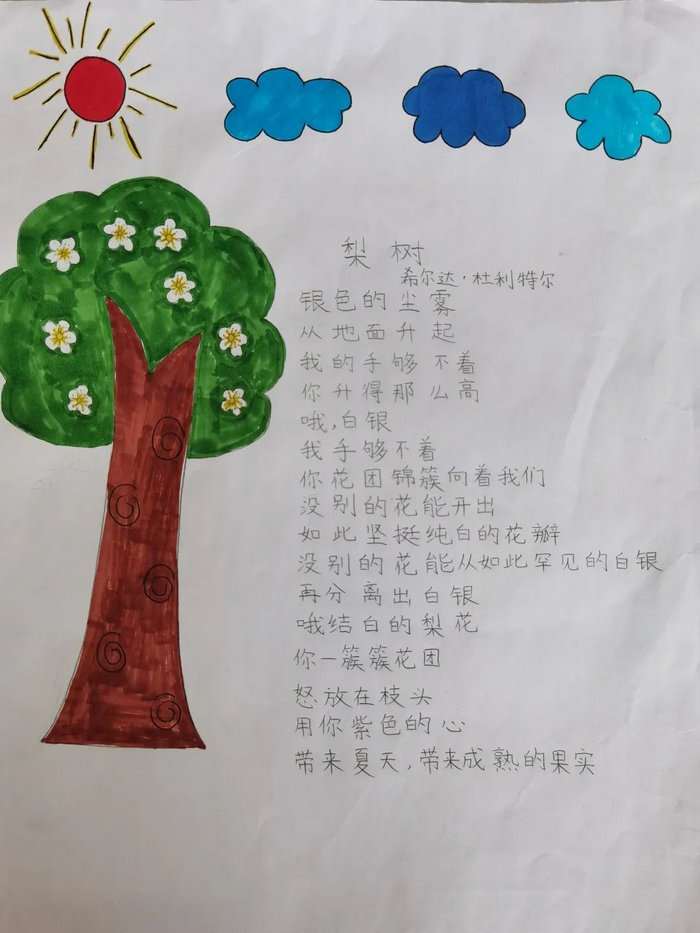 梨树
希尔达·杜利特尔
银色的尘雾
从地面升起
我的手够不着
你升得那么高
哦,白银
我手够不着
你花团锦簇向着我们
没别的花能开出
如此坚挺纯白的花瓣
没别的花能从如此罕见的白银
再分离出白银
哦结白的梨花
你一簇簇花团
怒放在枝头
用你紫色的心
带来夏天,带来成熟的果实